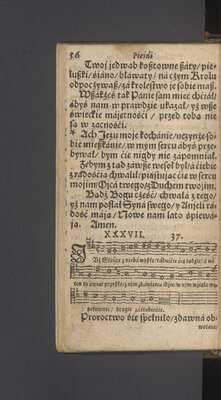 56 Pieśni
Twoj jedwab kosztowne szaty/ pie-
luszki/ siano/ bławaty/ na czym Krolu
odpoczywasz/ za krolestwo je sobie masz.
Wszakżeś tak Panie sam mieć chciał/
abyś nam w prawdzie ukazał/ yż wsze
świeckie majętności/ przed toba nie
sa w zacności.
Ach Jezu moje kochanie/ uczyń że so-
bie mieszkanie/ w mym sercu abyś prze-
bywał/ bym cie nigdy nie zapomniał.
Żebym z tad zawsze wesel był/ a ciebie
z radością chwalił/ piastując cie w sercu
moim/ Ojca twego/ z Duchem twoim.
Badź Bogu cześć/ chwała z tego/
yż nam posłał Syna swego/ z Anjeli ra-
dość maja/ Nowe nam lato śpiewa-
ja. Amen.
XXXVII. 37.
Proroctwo sie spełniło/ zdawna ob-
wołane